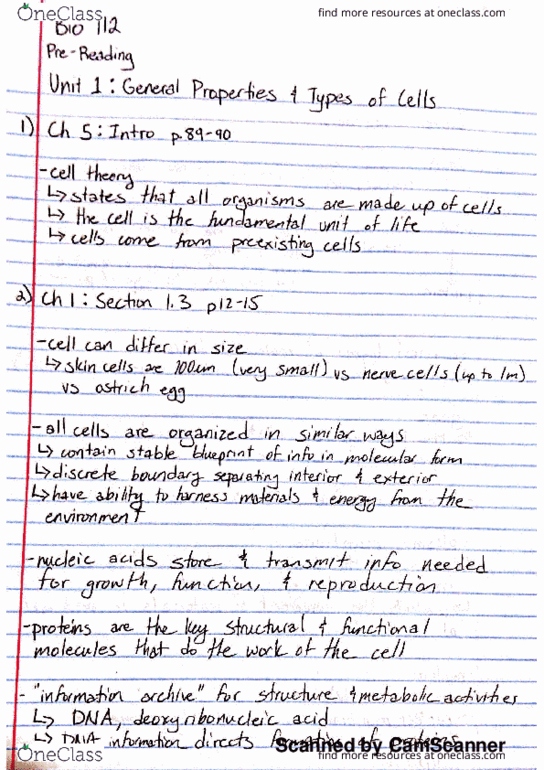 OneClass
find more resources at oneclass.com
BIO 112
Pre-Reading
Unit 1: General Properties & Types of Cells
1) Ch 5: Intro p.89-90
-cell theory
↳ states that all organisms are made up of cells
↳ the cell is the fundamental unit of life
↳ cells come from preexisting cells
2) Ch 1: Section 1.3 p12-15
-cell can differ in size
↳ skin cells are 100um (very small) vs nerve cells (up to 1m)
vs ostrich egg
-all cells are organized in similar ways
↳ contain stable blueprint of info in molecular form
↳ discrete boundary separating interior & exterior
↳ have ability to harness materials & energy from the
environment
-nucleic acids store & transmit info needed
for growth, function, & reproduction
-proteins are the key structural & functional
molecules that do the work of the cell
- "information archive" for structure & metabolic activities
↳ DNA, deoxyribonucleic acid
↳ DNA information directs formation of proteins
Scanned by CamScanner
OneClass
find more resources at oneclass.com